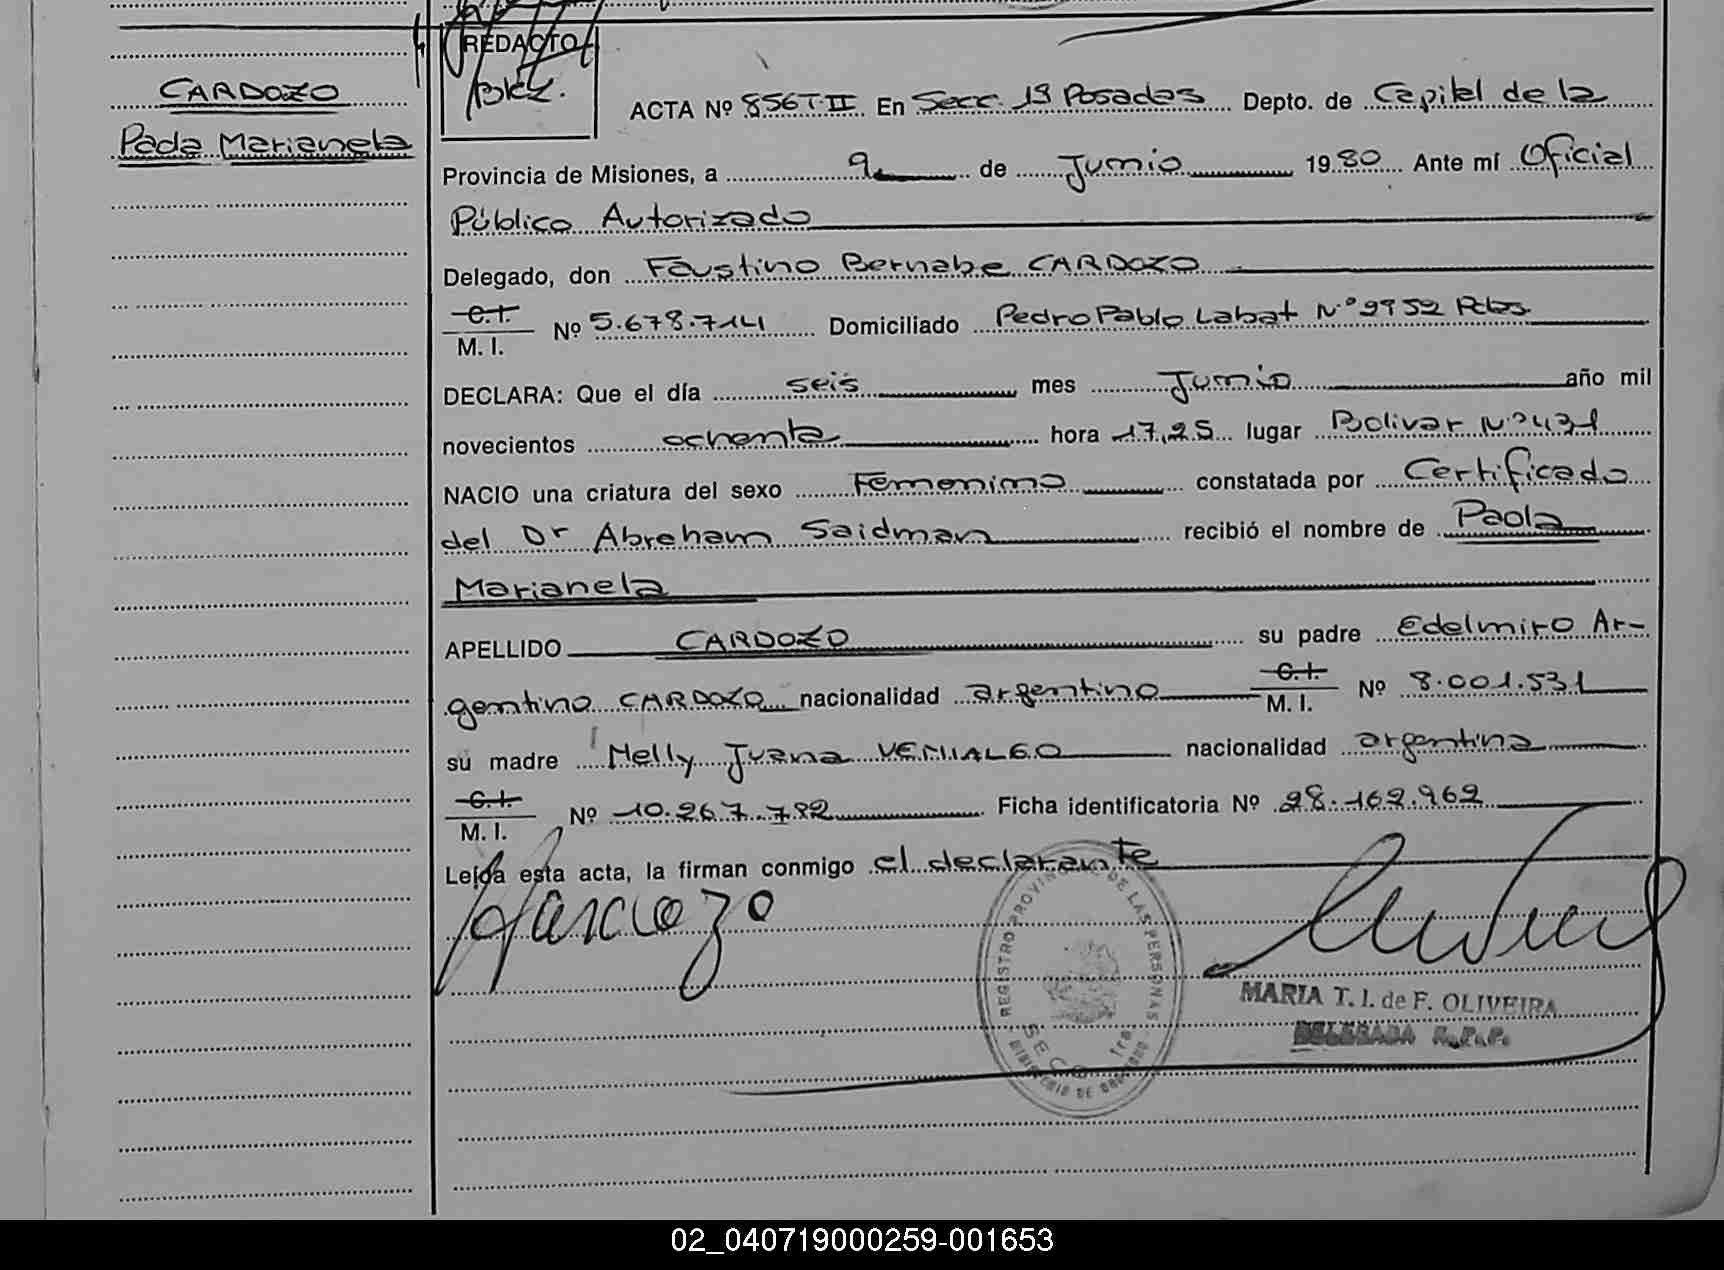 REDACTO
CARDOZO
Paola Marianela
ACTA Nº 856 T·II En Secc. 1ª Posadas Depto. de Capital de la
Provincia de Misiones, a 9 de Junio 1980 Ante mí Oficial
Público Autorizado
Delegado, don Faustino Bernabe CARDOZO
C.I.
M. I. Nº 5.678.714 Domiciliado Pedro Pablo Labat Nº 2952 Pdas
DECLARA: Que el día seis mes Junio año mil
novecientos ochenta hora 17,25 lugar Bolivar Nº 431
NACIO una criatura del sexo Femenino constatada por Certificado
del Dr Abraham Saidman recibió el nombre de Paola
Marianela
APELLIDO CARDOZO su padre Edelmiro Ar-
gentino CARDOZO nacionalidad argentino C.I. M. I. Nº 8.001.531
su madre Nelly Juana VENIALGO nacionalidad argentina
C.I.
M. I. Nº 10.267.782 Ficha identificatoria Nº 28.162.962
Leída esta acta, la firman conmigo el declarante
REGISTRO PROVINCIAL DE LAS PERSONAS
SECC 1ra
MINISTERIO DE GOBIERNO
MARIA T. I. de F. OLIVEIRA
DELEGADA R.P.P.
02_040719000259-001653